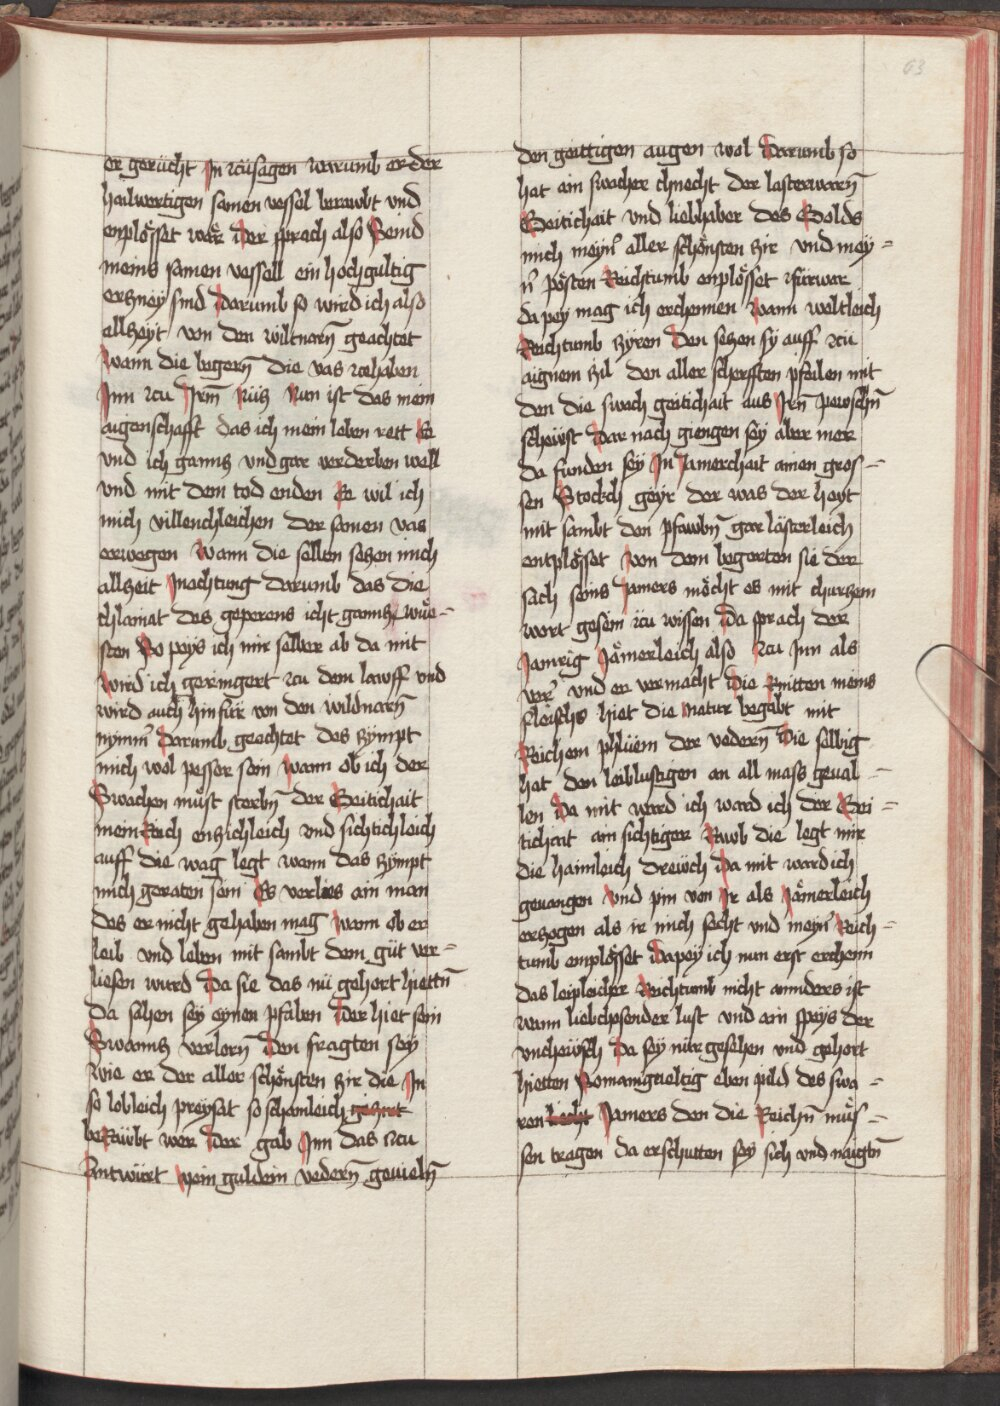 63
er gerücht Jn zcüsagen warumb er der
hailwertigen samen vessel beraubt vnd
enplösset wär Der sprach also Seind
meins samen vessell ein hochgultig
ertzney sind Darumb so wird ich also
allzeyt von den wiltnarñ geachtet
Wann die begerñ die vas zcehaben
Jnn zcu Jrm̃ nütz Nun ist das mein
aigenschafft das ich mein leben rett Ee
vnd ich ganntz vnd gar verderben well
vnd mit dem tod enden Ee wil ich
mich villenchleichen der samen vas
verwegen Wann die sellten sehen mich
allzeit Jnachtung darumb das die
chlainat des geperens icht ganntz wüe-
sten So peyß ich mir selber ab da mit
Wird ich geringert zcu dem lawff vnd
wird auch hinfür von den wildnarñ
nymm̃ Darumb geachtet des zympt
mich wol pesser sein Wann ob ich der
Swachen müst sterbñ der Geitichait
mein Reich entzichleich vnd sichtichleich
auff die wag legt wann das zympt
mich geraten sein Es verlies ain man
des er nicht gehaben mag Wann ob er
leib vnd leben mit sambt dem güt ver-
liesen wurd Da sie das nü gehort hiettñ
Da sahen sey eynen pfaben Der hiet sein
Swanntz verlorñ Den fragten sey
Wie er der aller schönsten zir die Jn
so lobleich preysat so schamleich geziret
beRaubt wer Der gab Jnn das zcu
Antwürt Mein guldein vederñ geuielñ
den geittigen augen wol Darumb so
hat ain swacher chnecht der lasterwarñ
Geitichait vnd liebhaber des Golds
mich meyñ aller schönsten zir vnd mey-
ñ pösten Reichtumb enplösset zfürwar
da pey mag ich erchennen Wann weltleich
Reichtumb zyren Den setzen sy auff zcü
aignem zil den aller scherfften pfeilen mit
den die swach geitichait aus Jrñ pewschñ
scheüsst Dar nach giengen sey aber mer
da funden sey Jn Jamerchait ainen gros-
sen Stockch geyr der was der heyt
mit sambt den pfawbñ gar lästerleich
entplösset Von dem begerten sie der
sach seins Jamers möcht es mit churtzem
wort gesein zcu wissen Da sprach der
Jamrig Jämerleich also zcu Jnn als
ver vnd er vermacht Die Knitten meins
fleischs hiet die Natur begabt mit
Reichem phlüem der vederñ Die selbig
hat den leiblustigen an all mass geual-
len Da mit werd ich ward ich der Gei-
tichait ain sichtiger Rawb die legt mir
die haimleich Drewch Da mit ward ich
geuangen Vnd pin von Jr als Jämerleich
ertzogen als ir mich secht vnd meyñ Reich-
tumb emplösset Dapey ich nun erst erchenn
das leipleicher Reichtumb nicht annders ist
wann liebchosender lust vnd ain speys der
vncheüsch Da sey nür gesehen vnd gehort
hietten Somanigueltig eben pild des swa-
ren Jamers den die Reichñ müs-
sen tragen da erschutten sey sich vnd naigtñ